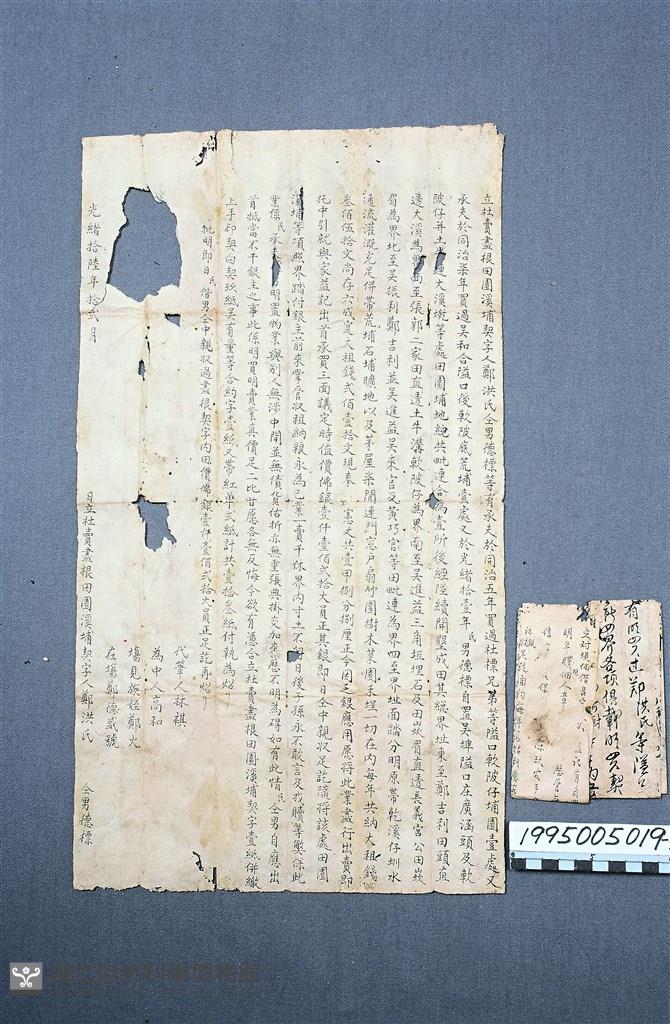 立杜賣盡根田園溪埔契字人鄭洪氏仝男德標等有承夫於同治五年買過杜標兄弟等隘口軟陂仔埔園壹處又
承夫於同治柒年買過吳和合隘口後軟陂底荒埔壹處又於光緒拾壹年氏男德標自置吳埤隘口庄廣涵頭及軟
陂仔并土 連大溪墘等處田園埔地總共毗連合為壹所後經陸續開墾成田其總界址東至鄭吉利田頭
透大溪為界西至張郭二家田直透土牛溝軟陂仔為界南至吳進益三角坵埋石及田崁眉直透長義宮公田崁
眉為界北至吳振利鄭吉利並吳進益吳來宮及黃巧官等田毗連為界四至界址面踏分明原帶乾溪仔圳水
通流灌溉充足併帶荒埔石埔曠地以及茅屋柒間連門窓戶扇竹圍樹木菜園禾埕一切在內每年共納大租錢
叁佰伍拾文尚存六成實大租錢弍佰壹拾文現奉 憲丈共壹甲捌分捌厘正今因乏銀應用愿將此業盡行出賣即
托中引就與家益記出首承買三面議定時值價佛銀壹仟壹佰弍拾大員正其銀即日仝中親收足訖隨將該處田園
溪埔等項照界踏付銀主前來掌管收租納粮永為己業一賣千休界內寸土不 日後子孫永不敢言及找贖等獘保此
業係氏承夫 明置物業與別人無涉中間並無債貨佔折亦無重張典掛交加來歷不明為碍如有此情氏仝男自應出
首抵當不干銀主之事此係明買明賣業真價足二比甘愿各無反悔今欲有憑合立杜賣盡根田園溪埔契字壹紙併繳
上手印契白契玖紙吳有量等合約字壹紙又帶紅單弍紙計共壹拾叁紙付執為炤
批明即日氏偕男仝中親收過盡根契字內田價佛銀壹仟壹佰弍拾大員正足訖再炤
代筆人林祺
為中人高和
塲見族姪鄭火
在塲鄭德咸號
光緒拾陸年拾弍月
日立杜賣盡根田園溪埔契字人鄭洪氏
仝男德標
鄭洪氏等隘口
四界各項俱載明買契
1995005019
國立自然科學博物館